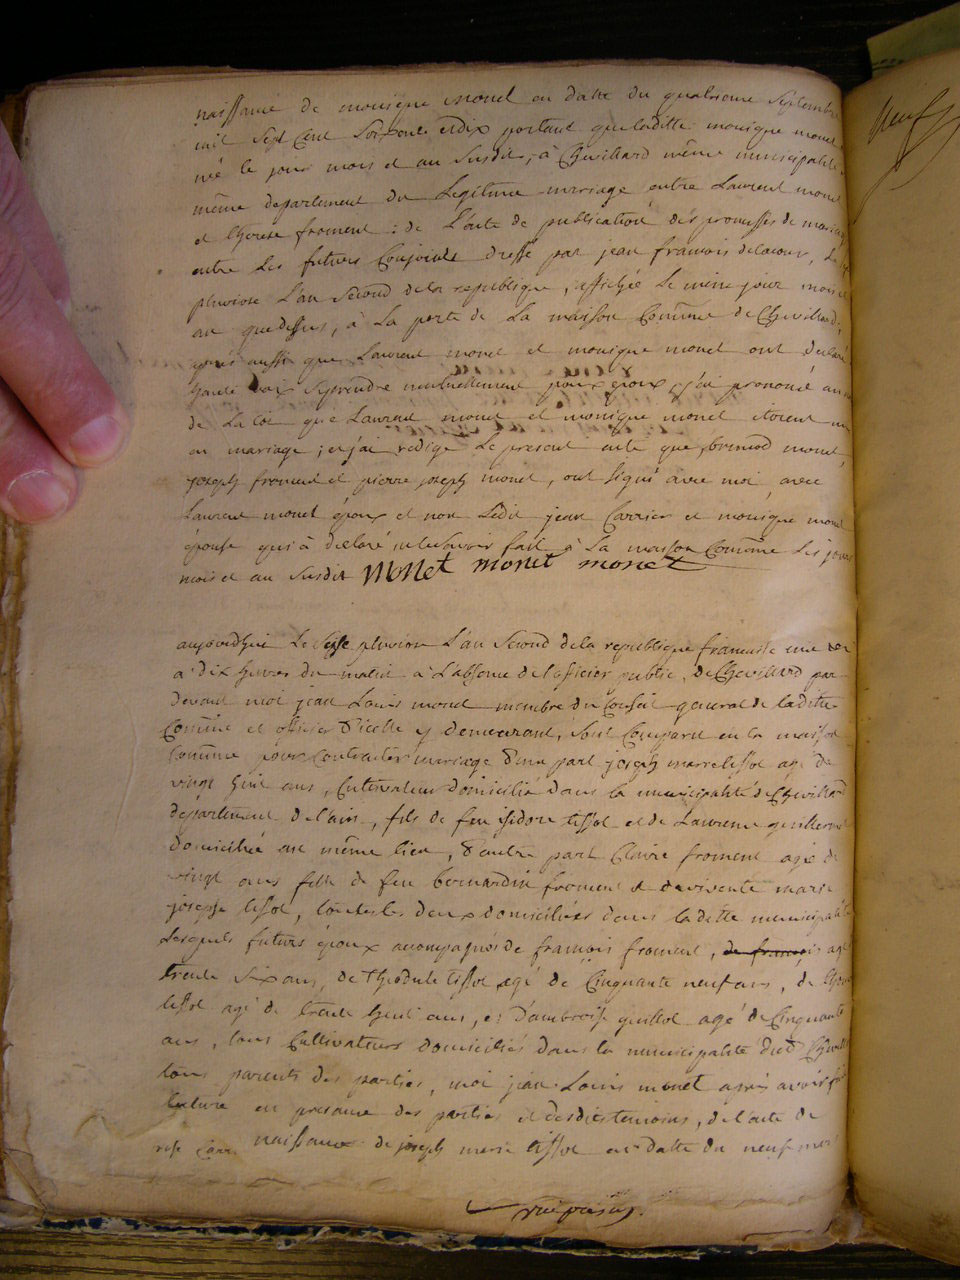 naissance de monique monet en datte du quatrieme septembre
mil sept cent soixante et dix portant que laditte monique monet
né le jour mois et an susdit, à Chevillard même municipalité
même departement du Legitime mariage entre Laurent monet
et therese froment : de L'acte de publication des promesses de mariage
entre les futurs Conjoints dressé par jean francois delacour, Le
pluviose L'an second de la republique, affichée Le même jour mois et
an que dessus, à La porte de La maison Commune de Chevillard,
après aussi que Laurent monet et monique monet ont declaré
haute voix se prendre mutuellement pour epoux, j'ai prononcé au nom
de La Loi que Laurent monet et monique monet etoient unis
en mariage ; et j'ai redigé Le present acte que monet,
joseph froment et pierre joseph monet, ont signé avec moi, avec
Laurent monet époux et non Ledit jean Carrier et monique monet
épouse qui à declaré ne le savoir fait à La maison Commune Les jour
mois et an susdit Monet monet monet
aujourd'hui Le seise pluviose L'an second de la republique francaise une
à dix heures du matin à L'absence de L'officier public de Chevillard par
devant moi jean Louis monet membre du Conseil general de laditte
Commune et officier d'icelle y demeurant, sont Comparu en la maison
Commune pour Contracter mariage d'une part joseph marie tissot agé de
vingt huit ans, Cultivateur domicilié dans la municipalité de Chevillard
département de L'ain, fils de feu isidore tissot et de Laurence guillermet
domiciliée au même lieu, d'autre part Claire froment agé de
vingt ans fille de feu bernardin froment et de vivente marie
josephe tissot, toutes les deux domiciliées dans laditte municipalité
Lesquels futurs époux accompagnés de francois froment, de francois agé
trente six ans, de theodule tissot agé de Cinquante neuf ans, de
tissot agé de trente huit ans, et d'ambroise guillot agé de Cinquante
ans, tous Cultivateurs domiciliés dans la municipalité dudt Chevillard
tous parents des parties, moi jean Louis monet après avoir fait
lecture en presence des parties et desdits temoins, de L'acte de
naissance de joseph marie tissot en datte du neuf mars